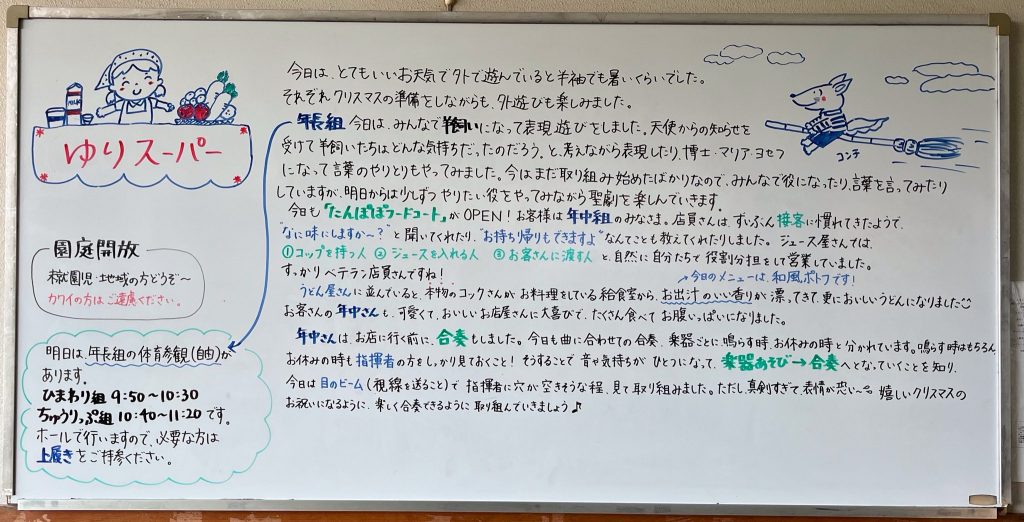 ゆりスーパー
MILK
コン子
今日は、とてもいいお天気で外で遊んでいると半袖でも暑いくらいでした。
それぞれクリスマスの準備をしながらも、外遊びも楽しみました。
年長組 今日は、みんなで羊飼いになって表現遊びをしました。天使からの知らせを
受けて羊飼いたちはどんな気持ちだったのだろう。と、考えながら表現したり、博士・マリア・ヨセフ
になって言葉のやりとりもやってみました。今はまだ取り組み始めたばかりなので、みんなで役になったり、言葉を言ってみたり
していますが、明日からは少しずつやりたい役をやってみながら聖劇を楽しんでいきます。
今日も「たんぽぽフードコート」がOPEN!お客様は年中組のみなさま。店員さんは、ずいぶん接客に慣れてきたようで、
"なに味にしますか〜?"と聞いてくれたり、"お持ち帰りもできますよ"なんてことも教えてくれたりしました。ジュース屋さんでは、
①コップを持つ人 ②ジュースを入れる人 ③お客さんに渡す人 と、自然に自分たちで役割分担をして営業していました。
すっかりベテラン店員さんですね!
今日のメニューは、和風ポトフです!
うどん屋さんに並んでいると、本物のコックさんがお料理をしている給食室から、お出汁のいい香りが漂ってきて、更においしいうどんになりました
お客さんの年中さんも、可愛くて、おいしいお店屋さんに大喜びで、たくさん食べてお腹いっぱいになりました。
年中さんは、お店に行く前に、合奏もしました。今日も曲に合わせての合奏、楽器ごとに、鳴らす時、お休みの時と分かれています。鳴らす時はもちろん、
お休みの時も指揮者の方をしっかり見ておくこと!そうすることで音や気持ちがひとつになって、楽器あそび→合奏へとなっていくことを知り、
今日は目のビーム(視線を送ること)で指揮者に穴が空きそうな程、見て取り組みました。ただし、真剣すぎて、表情が恐い〜 嬉しいクリスマスの
お祝いになるように、楽しく合奏できるように取り組んでいきましょう♪
園庭開放
未就園児・地域の方どうぞ〜
カワイの方はご遠慮ください。
明日は、年長組の体育参観(自由)が
あります。
ひまわり組 9:50〜10:30
ちゅうりっぷ組 10:40〜11:20 です。
ホールで行いますので、必要な方は
上履きをご持参ください。